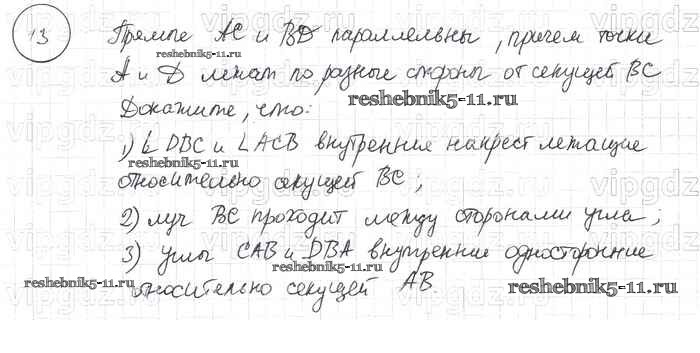 13
Прямые AC и BD параллельны, причем точки
reshebnik5-11.ru
A и D лежат по разные стороны от секущей BC
reshebnik5-11.ru
Докажите, что:
1) ∠ DBC и ∠ ACB внутренние накрест лежащие
reshebnik5-11.ru
относительно секущей BC;
2) луч BC проходит между сторонами угла;
3) углы CAB и DBA внутренние односторонние
reshebnik5-11.ru
reshebnik5-11.ru
относительно секущей AB.
reshebnik5-11.ru